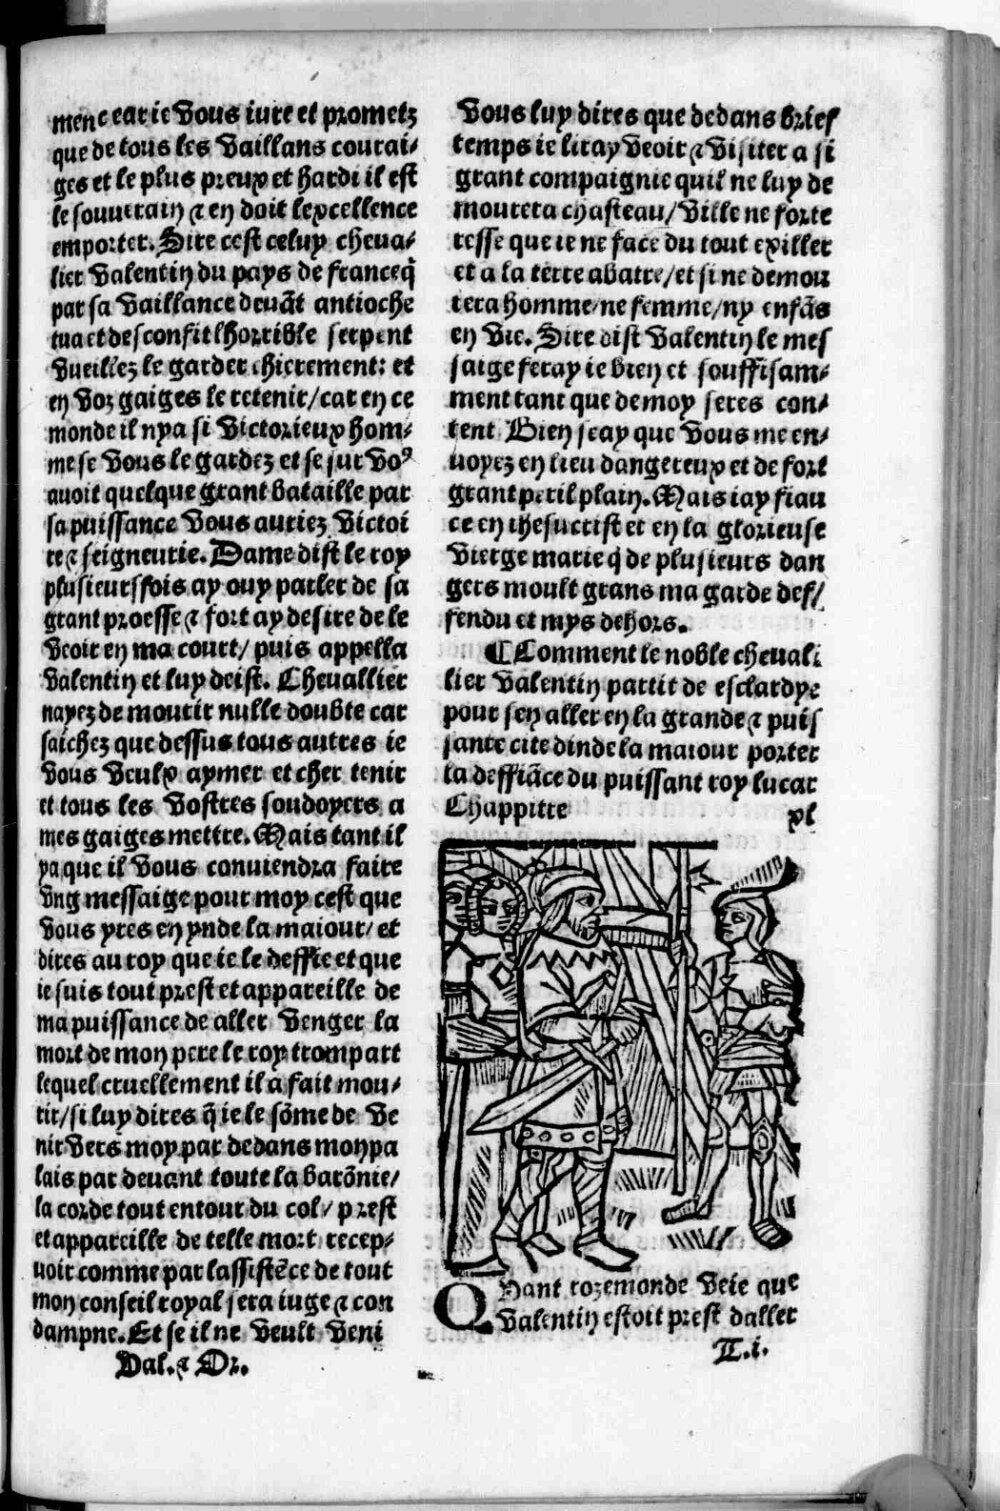 menc car ie vous iure et prometz
que de tous les vaillans courai⸗
ges et le plus preux et hardi il est
le souuerain ⁊ en doit lexcellence
emporter. Sire cest celuy cheua⸗
lier valentin du pays de france q̃
par sa vaillance deuãt antioche
tua et desconfit lhorrible serpent
vueillez le garder chierement: et
en voz gaiges le retenir/car en ce
monde il nya si victorieux hom⸗
me se vous le gardez et se sur voꝰ
auoit quelque grant bataille par
sa puissance vous auriez victoi
re ⁊ seigneurie. Dame dist le roy
plusieurs fois ay ouy parler de sa
grant proesse ⁊ fort ay desire de le
veoir en ma court/ puis appella
valentin et luy deist. Cheuallier
nayez de mourir nulle doubte car
saichez que dessus tous autres ie
vous veulx aymer et cher tenir
et tous les vostres soudoyers a
mes gaiges mettre. Mais tant il
ya que il vous conuiendra faire
vng messaige pour moy cest que
vous yres en ynde la maiour/ et
dires au roy que ie le deffie et que
ie suis tout prest et appareille de
ma puissance de aller venger la
mort de mon pere le roy trompart
lequel cruellement il a fait mou⸗
rir/si luy dires q̃ ie le sõme de ve
nir vers moy par dedans mon pa
lais par deuant toute la barõnie/
la corde tout entour du col/ prest
et appareille de telle mort recep⸗
uoir comme par lassistẽce de tout
mon conseil royal sera iuge ⁊ con
dampne. Et se il ne veult veni
Val. ⁊ Or.
vous luy dires que dedans brief
temps ie liray veoir ⁊ visiter a si
grant compaignie quil ne luy de
mourera chasteau/ ville ne forte
resse que ie ne face du tout exiller
et a la terre abatre/et si ne demou
rera homme/ne femme/ny enfãs
en vie. Sire dist valentin le mes
saige feray ie bien et souffisam⸗
ment tant que de moy seres con⸗
tent Bien scay que vous me en⸗
uoyez en lieu dangereux et de fort
grant peril plain. Mais iay fian
ce en ihesucrist et en la glorieuse
vierge marie q̃ de plusieurs dan
gers moult grans ma garde def/
fendu et mys dehors.
¶Comment le noble cheuali
lier valentin partit de esclardye
pour sen aller en la grande ⁊ puis
sante cite dinde la maiour porter
la deffiãce du puissant roy lucar
Chappitre xl
QVant rozemonde veie que
valentin estoit prest daller
T.i.